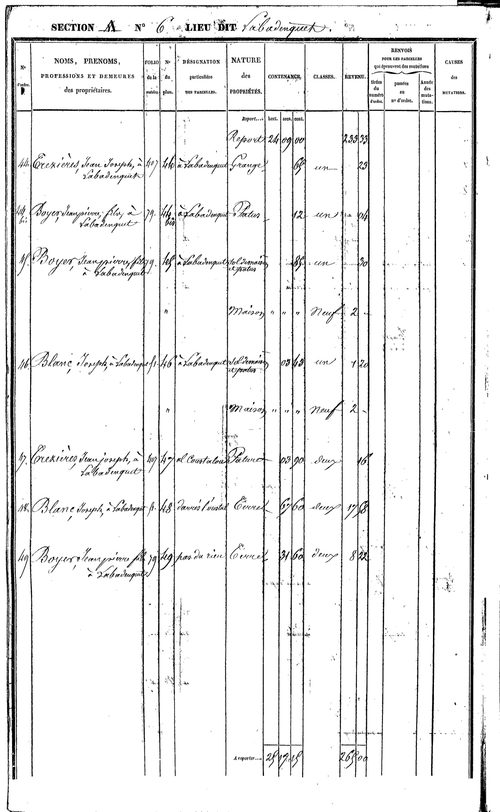 SECTION A N° 6 LIEU DIT Labadenquet.
N° d'ordre. NOMS, PRENOMS, PROFESSIONS ET DEMEURES des propriétaires. FOLIO de la matrice N° du plan. DÉSIGNATION particulière DES PARCELLES. NATURE des PROPRIÉTÉS. CONTENANCE. CLASSES. REVENU. RENVOIS POUR LES PARCELLES qui éprouvent des mutations CAUSES des MUTATIONS.
hect. ares. cent. Années des mutations.
Report....
Report 24 09 00 233 33
44 Trezières, Jean Joseph, à Labadenquet 107 44 à Labadenquet Grange 65 un 23
44 bis Boyer, Jean pierre, fils, à Labadenquet 79. 44 bis à Labadenquet Patus 12 un 04
45 Boyer, Jean pierre, fils à Labadenquet 79. 45 à Labadenquet Sol de maison et patus 85 un 30
" Maison " " " Neuf 2 "
46 Blanc, Joseph, à Labadenquet 46 à Labadenquet Sol de maison et patus 03 43 un 1 20
" Maison " " " Neuf 2 "
47. Trezières, Jean joseph, à Labadenquet 107 47 al Coustalou Pature 03 90 deux 16
48. Blanc, Joseph, à Labadenquet 48 Terre 67 60 deux 17 58
49 Boyer, Jean pierre fils à Labadenquet 79 49 pas du rieu Terre 31 60 deux 8 22
A reporter.... 25 17 15 265 00